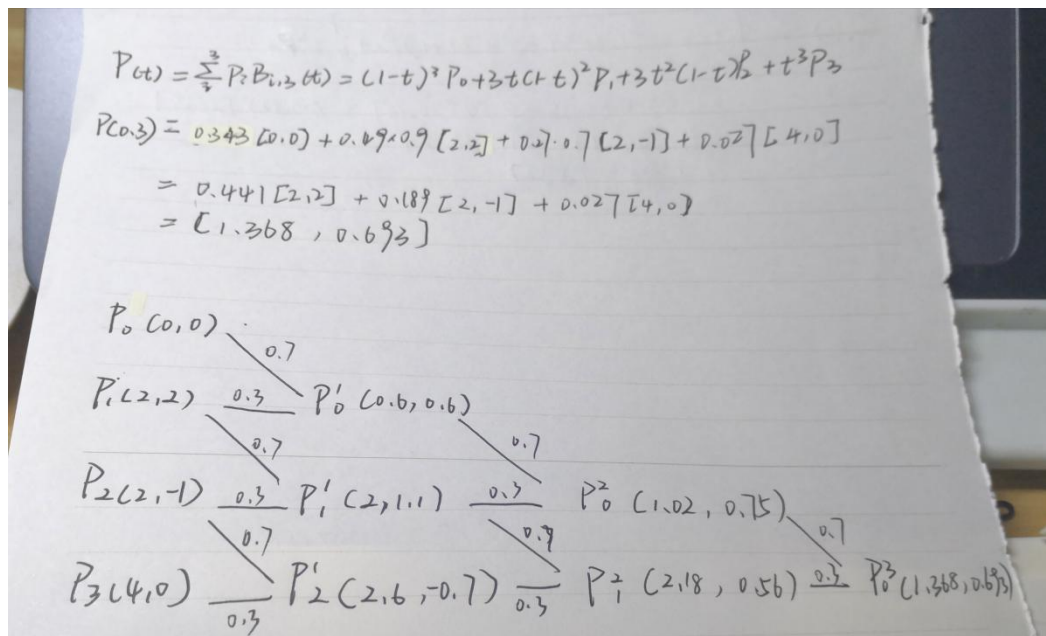 P(t) = Σ³₃ PᵢBᵢ,₃(t) = (1-t)³P₀+3t(1-t)²P₁+3t²(1-t)P₂+t³P₃
P(0.3) = 0.343[0,0]+0.49×0.9[2,2]+0.27·0.7[2,-1]+0.027[4,0]
= 0.441[2,2]+0.189[2,-1]+0.027[4,0]
= [1.368, 0.693]
P₀(0,0)
0.7
P₁(2,2) 0.3 P₀¹(0.6,0.6)
0.7 0.7
P₂(2,-1) 0.3 P₁¹(2,1.1) 0.3 P₀²(1.02, 0.75)
0.7 0.7 0.7
P₃(4,0) 0.3 P₂¹(2.6,-0.7) 0.3 P₁²(2.18, 0.56) 0.3 P₀³(1.368,0.693)